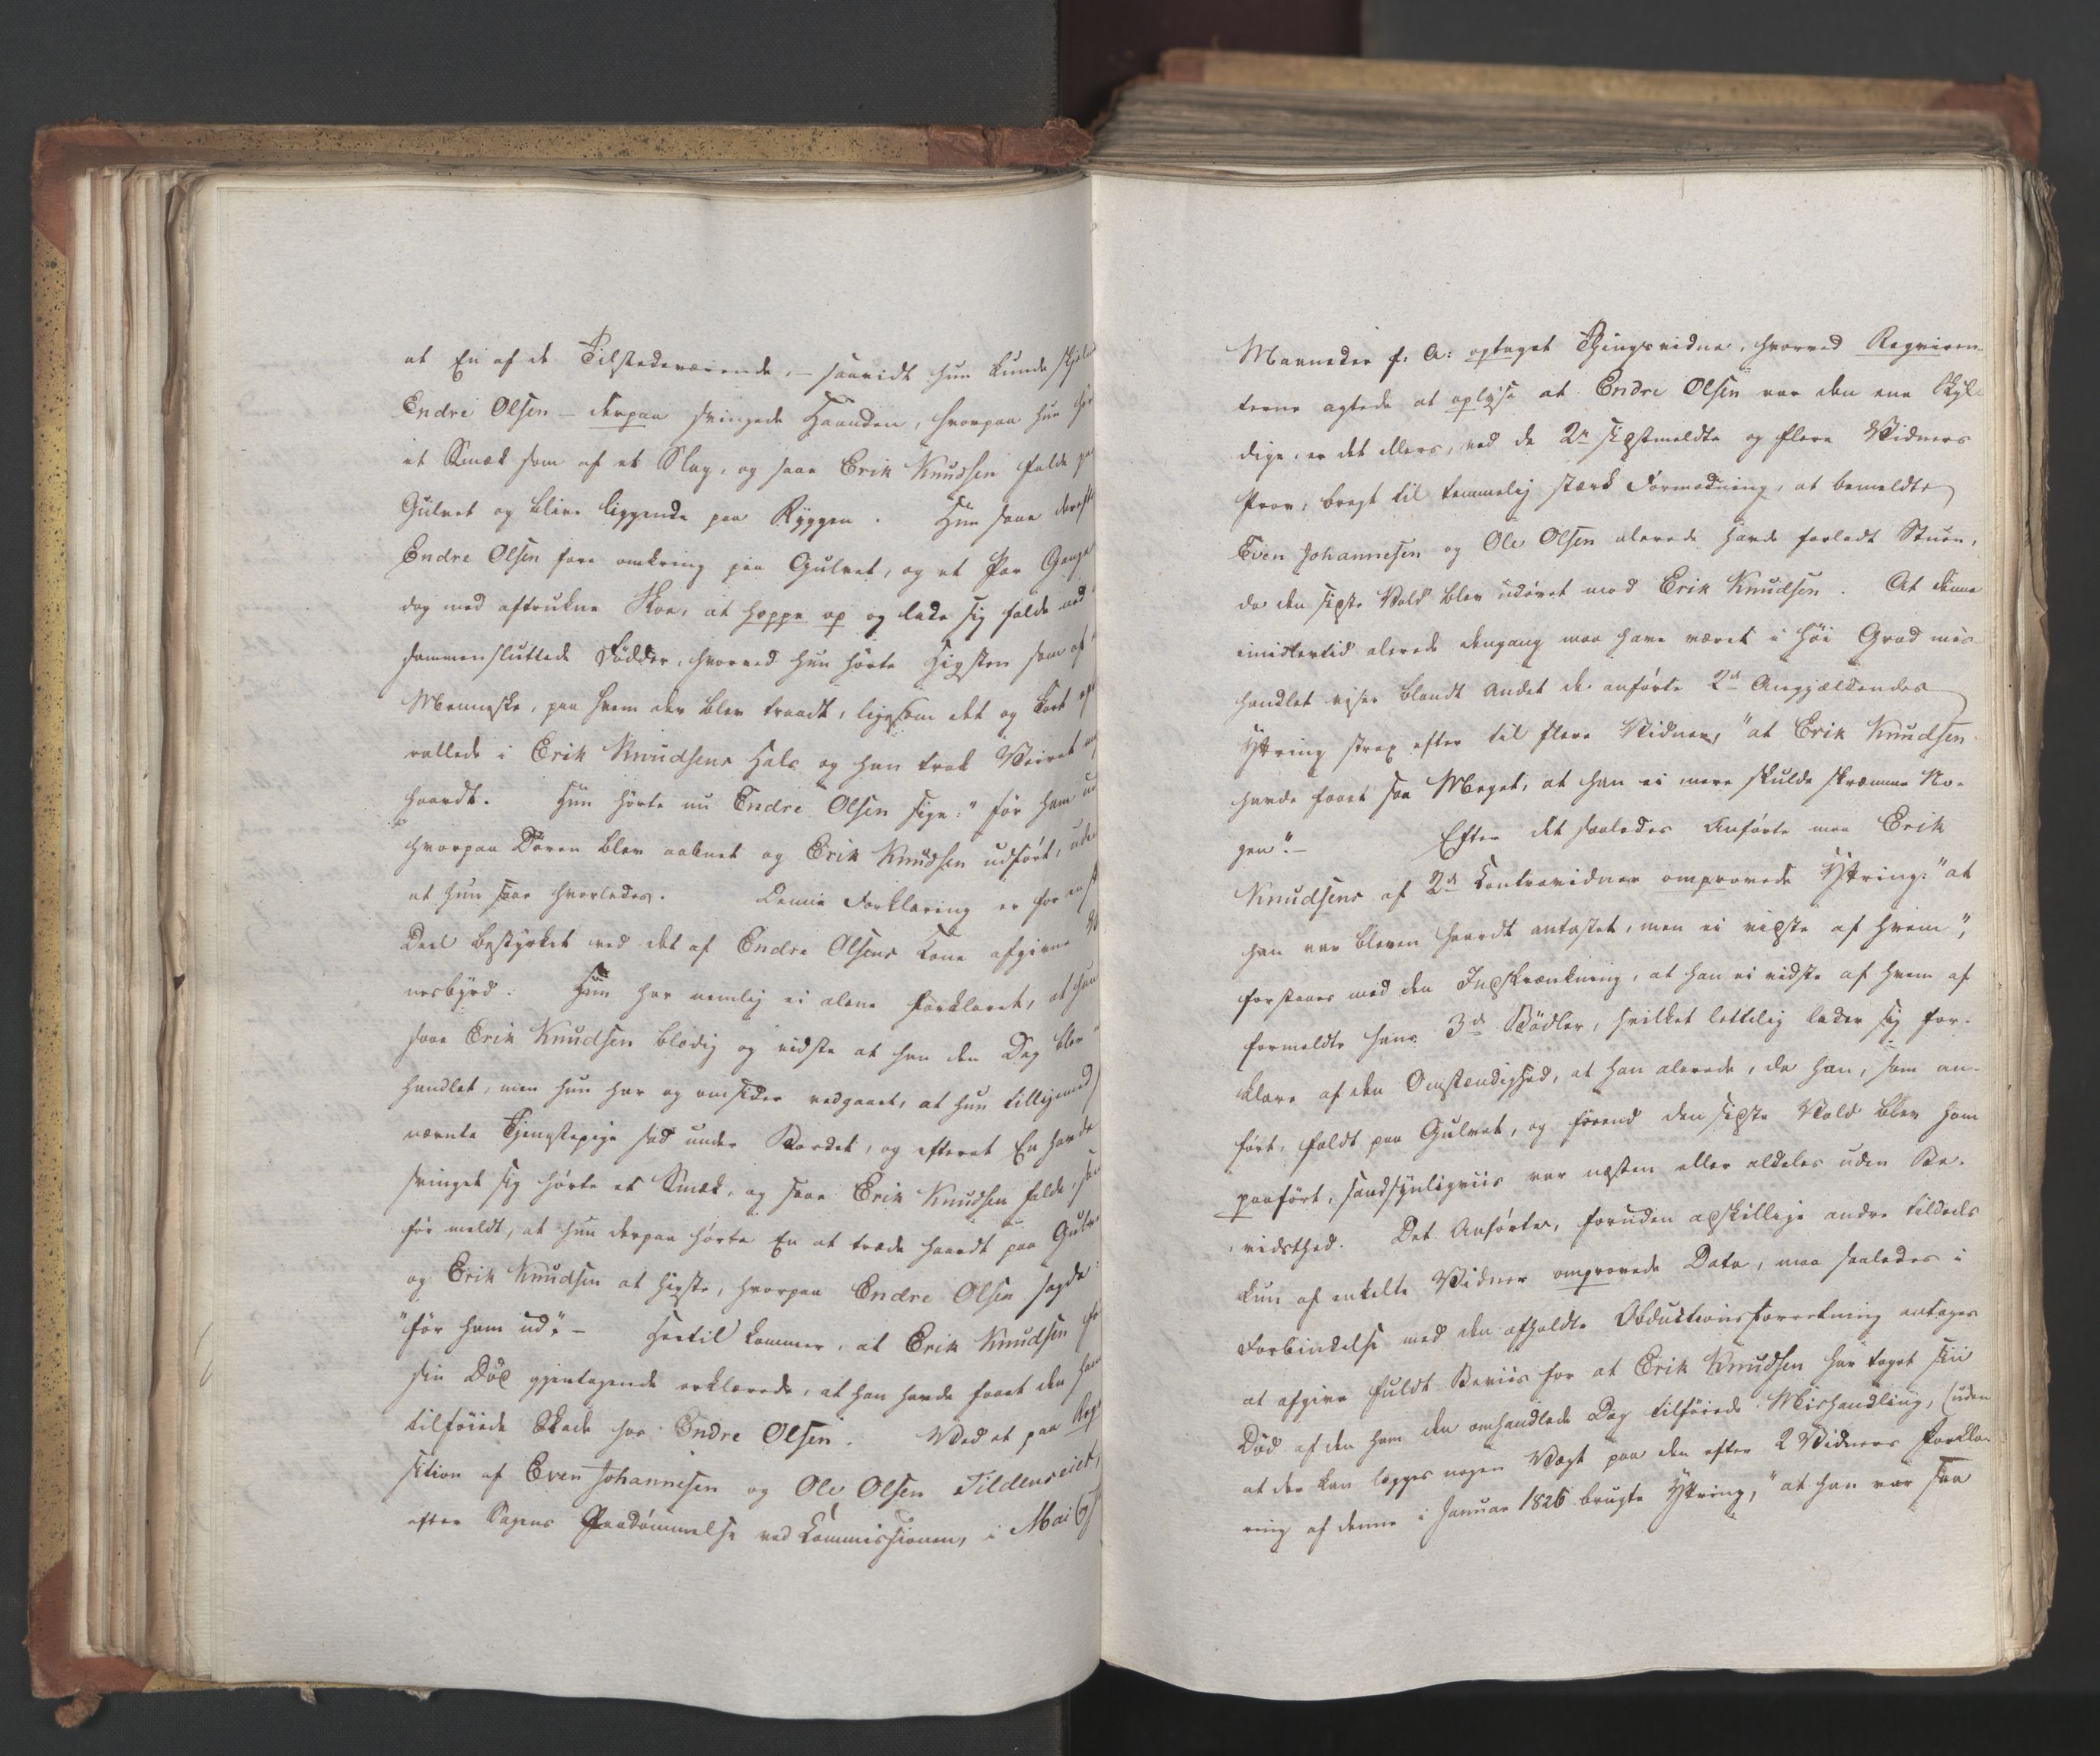 at En af de Tilstedeværende, – saavidt hun kunde skjel
Endre Olsen – derpaa svingede Haanden, hvorpaa hun hør
et Smæk som af et Slag, og saae Erik Knudsen falde paa
Gulvet og blive liggende paa Ryggen. Hun saae
Endre Olsen fare omkring paa Gulvet, og et Par Gange
dog med aftrukne Skoe, at hoppe op og lade sig falde ned
sammensluttede Fødder, hvorved hun hørte Higsten som af
Menneske, paa hvem der blev traadt, ligesom det og
rallede i Erik Knudsens Hals og han trak Veiret
haardt. Hun hørte nu Endre Olsen sige: "før ham ud
hvorpaa Døren blev aabnet og Erik Knudsen udført, uden
at hun saae hvorledes. Denne Forklaring er for en
Deel bestyrket ved det af Endre Olsens Kone afgivne
nesbyrd. Hun har nemlig ei alene forklaret, at hun
saae Erik Knudsen blodig og vidste at han den Dag blev
handlet, men hun har og omsider vedgaaet, at hun tilligemed
nævnte Tjenestepige sad under Bordet, og efterat En havde
svinget sig hørte et Smæk, og saae Erik Knudsen falde,
før meldt, at hun derpaa hørte En at træde haardt paa Gulv
og Erik Knudsen at higste, hvorpaa Endre Olsen sagde:
"før ham ud". – Hertil kommer, at Erik Knudsen
sin Død gjentagende erklærede, at han havde faaet den ham
tilføiede Skade hos Endre Olsen. Ved et paa
sition af Even Johannesen og Ole Olsen Tildenseiet,
efter Sagens Paadømmelse ved Commissionen, i Mai
Maaneder f: A: optaget Thingsvidne, hvorved Reqviren-
terne agtede at oplyse at Endre Olsen var den ene Skyl-
dige, er det ellers, ved de 2de sidstmeldte og flere Vidners
Prov, bragt til temmelig stærk Formodning, at bemeldte
Even Johannesen og Ole Olsen alerede havde forladt Stuen,
da den sidste Vold blev udøvet mod Erik Knudsen. At denne
imidlertid alerede dengang maa have været i høi Grad mis-
handlet viser blandt andet de anførte 2de Angjældendes
Yttring strax efter til flere Vidner, "at Erik Knudsen
havde faaet saa Meget, at han ei mere skulde skræmme No-
gen". – Efter det saaledes Anførte maa Erik
Knudsens af 2de Contravidner omprovede Yttring: "at
han var bleven haardt antastet, men ei vidste af hvem",
forstaaes med den Indskrænkning, at han ei vidste af hvem af
formeldte hans 3de Bødler, hvilket lettelig lader sig for-
klare af den Omstændighed, at han alerede, da han, som an-
ført, faldt paa Gulvet, og førend den sidste Vold blev ham
paaført, sandsynligviis var næsten eller aldeles uden Be-
vidsthed. Det Anførte, foruden adskillige andre tildeels
kun af enkelte Vidner omprovede Data, maa saaledes i
Forbindelse med den afholdte Obductionsforretning antages
at afgive fuldt Beviis for at Erik Knudsen har taget sin
Død af den ham den omhandlede Dag tilføiede Mishandling, (uden
at der kan lægges nogen Vægt paa den efter 2 Vidners Forkla-
ring af denne i Januar 1826 brugte Yttring, "at han var saa